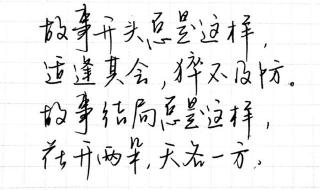 故事开头总是这样，
适逢其会，猝不及防。
故事结局总是这样，
花开两朵，天各一方。